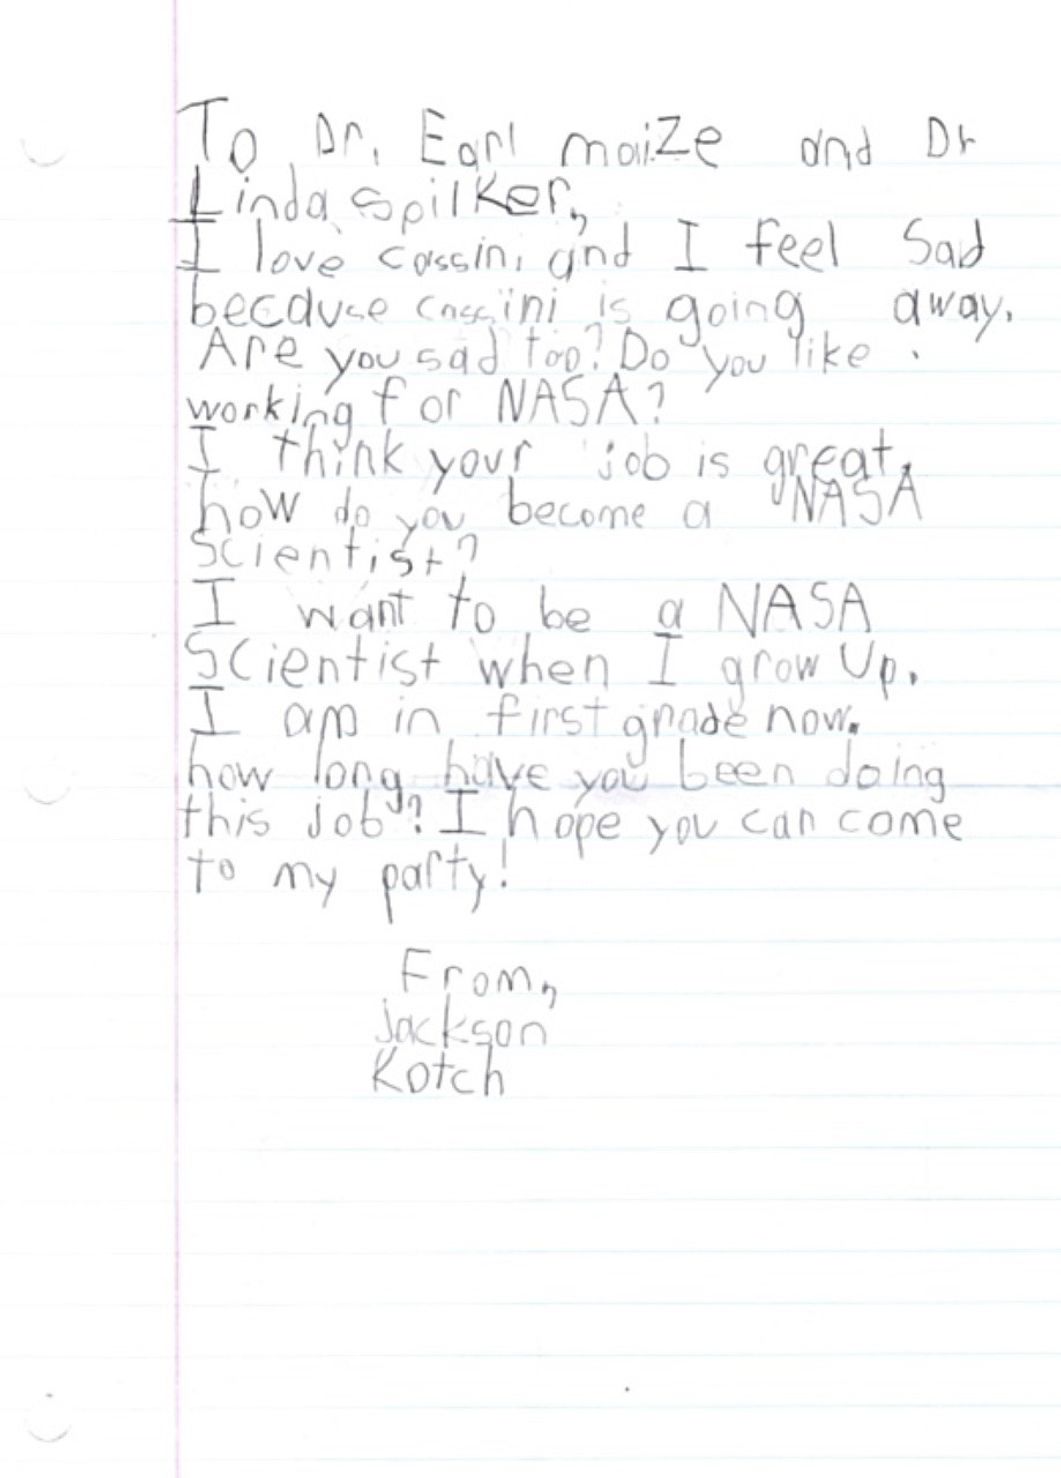 To Dr. Earl maize and Dr
Linda spilker,
I love cassini and I feel Sad
because cassini is going away.
Are you sad too? Do you like
working for NASA?
I think your job is great.
how do you become a NASA
Scientist?
I want to be a NASA
Scientist when I grow Up.
I am in first grade now.
how long have you been doing
this job? I hope you can come
to my party!
From,
Jackson
Kotch